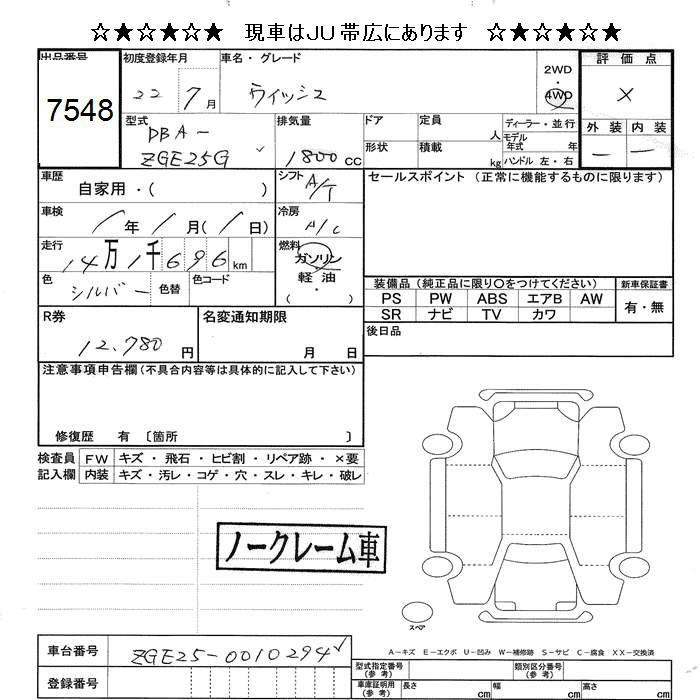 ☆★☆★☆★ 現車はＪＵ帯広にあります ☆★☆★☆★
出品番号 初度登録年月 車名・グレード 2WD 評価点
7548 22 7月 ウィッシュ 4WD ×
型式 排気量 ドア 定員 人 ディーラー・並行 外装 内装
DBA-
ZGE25G 1800 CC 形状 積載 kg モデル年式 年 ハンドル 左・右 － －
車歴 自家用・( ) シフト A/T セールスポイント (正常に機能するものに限ります)
車検 / 年 / 月(/ 日) 冷房 A/C
走行 14万1千696km 燃料 ガソリン
軽油
( ・ )
色 シルバー 色替 色コード
装備品 (純正品に限り○をつけてください) 新車保証書
PS PW ABS エアB AW 有・無
SR ナビ TV カワ
R券 名変通知期限 後日品
12,780円 月 日
注意事項申告欄(不具合内容等は具体的に記入して下さい)
修復歴 有 〔箇所 〕
検査員 FW キズ・飛石・ヒビ割・リペア跡・×要
記入欄 内装 キズ・汚レ・コゲ・穴・スレ・キレ・破レ
ノークレーム車
スペア
A－キズ E－エクボ U－凹み W－補修跡 S－サビ C－腐食 XX－交換済
車台番号 ZGE25-0010294
型式指定番号(参考) 類別区分番号(参考)
登録番号 車庫証明用(参考) 長さ cm 幅 cm 高さ cm